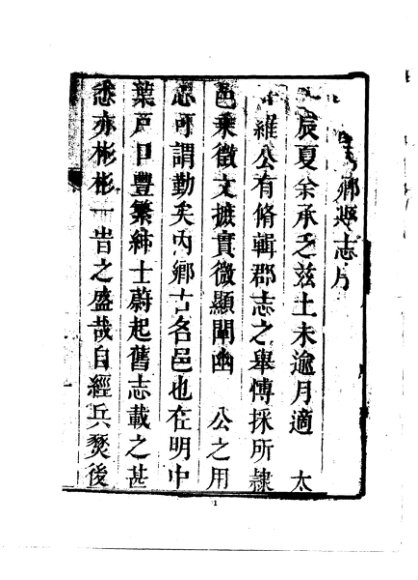 鄉縣志序
辰夏余承乏茲土未逾月適　太
羅公有脩輯郡志之舉愽採所隸
邑乘徵文摭實微顯闡幽　公之用
志可謂勤矣內鄉古名邑也在明中
葉戶口豐繁紳士蔚起舊志載之甚
悉亦彬彬一旹之盛哉自經兵燹後
1